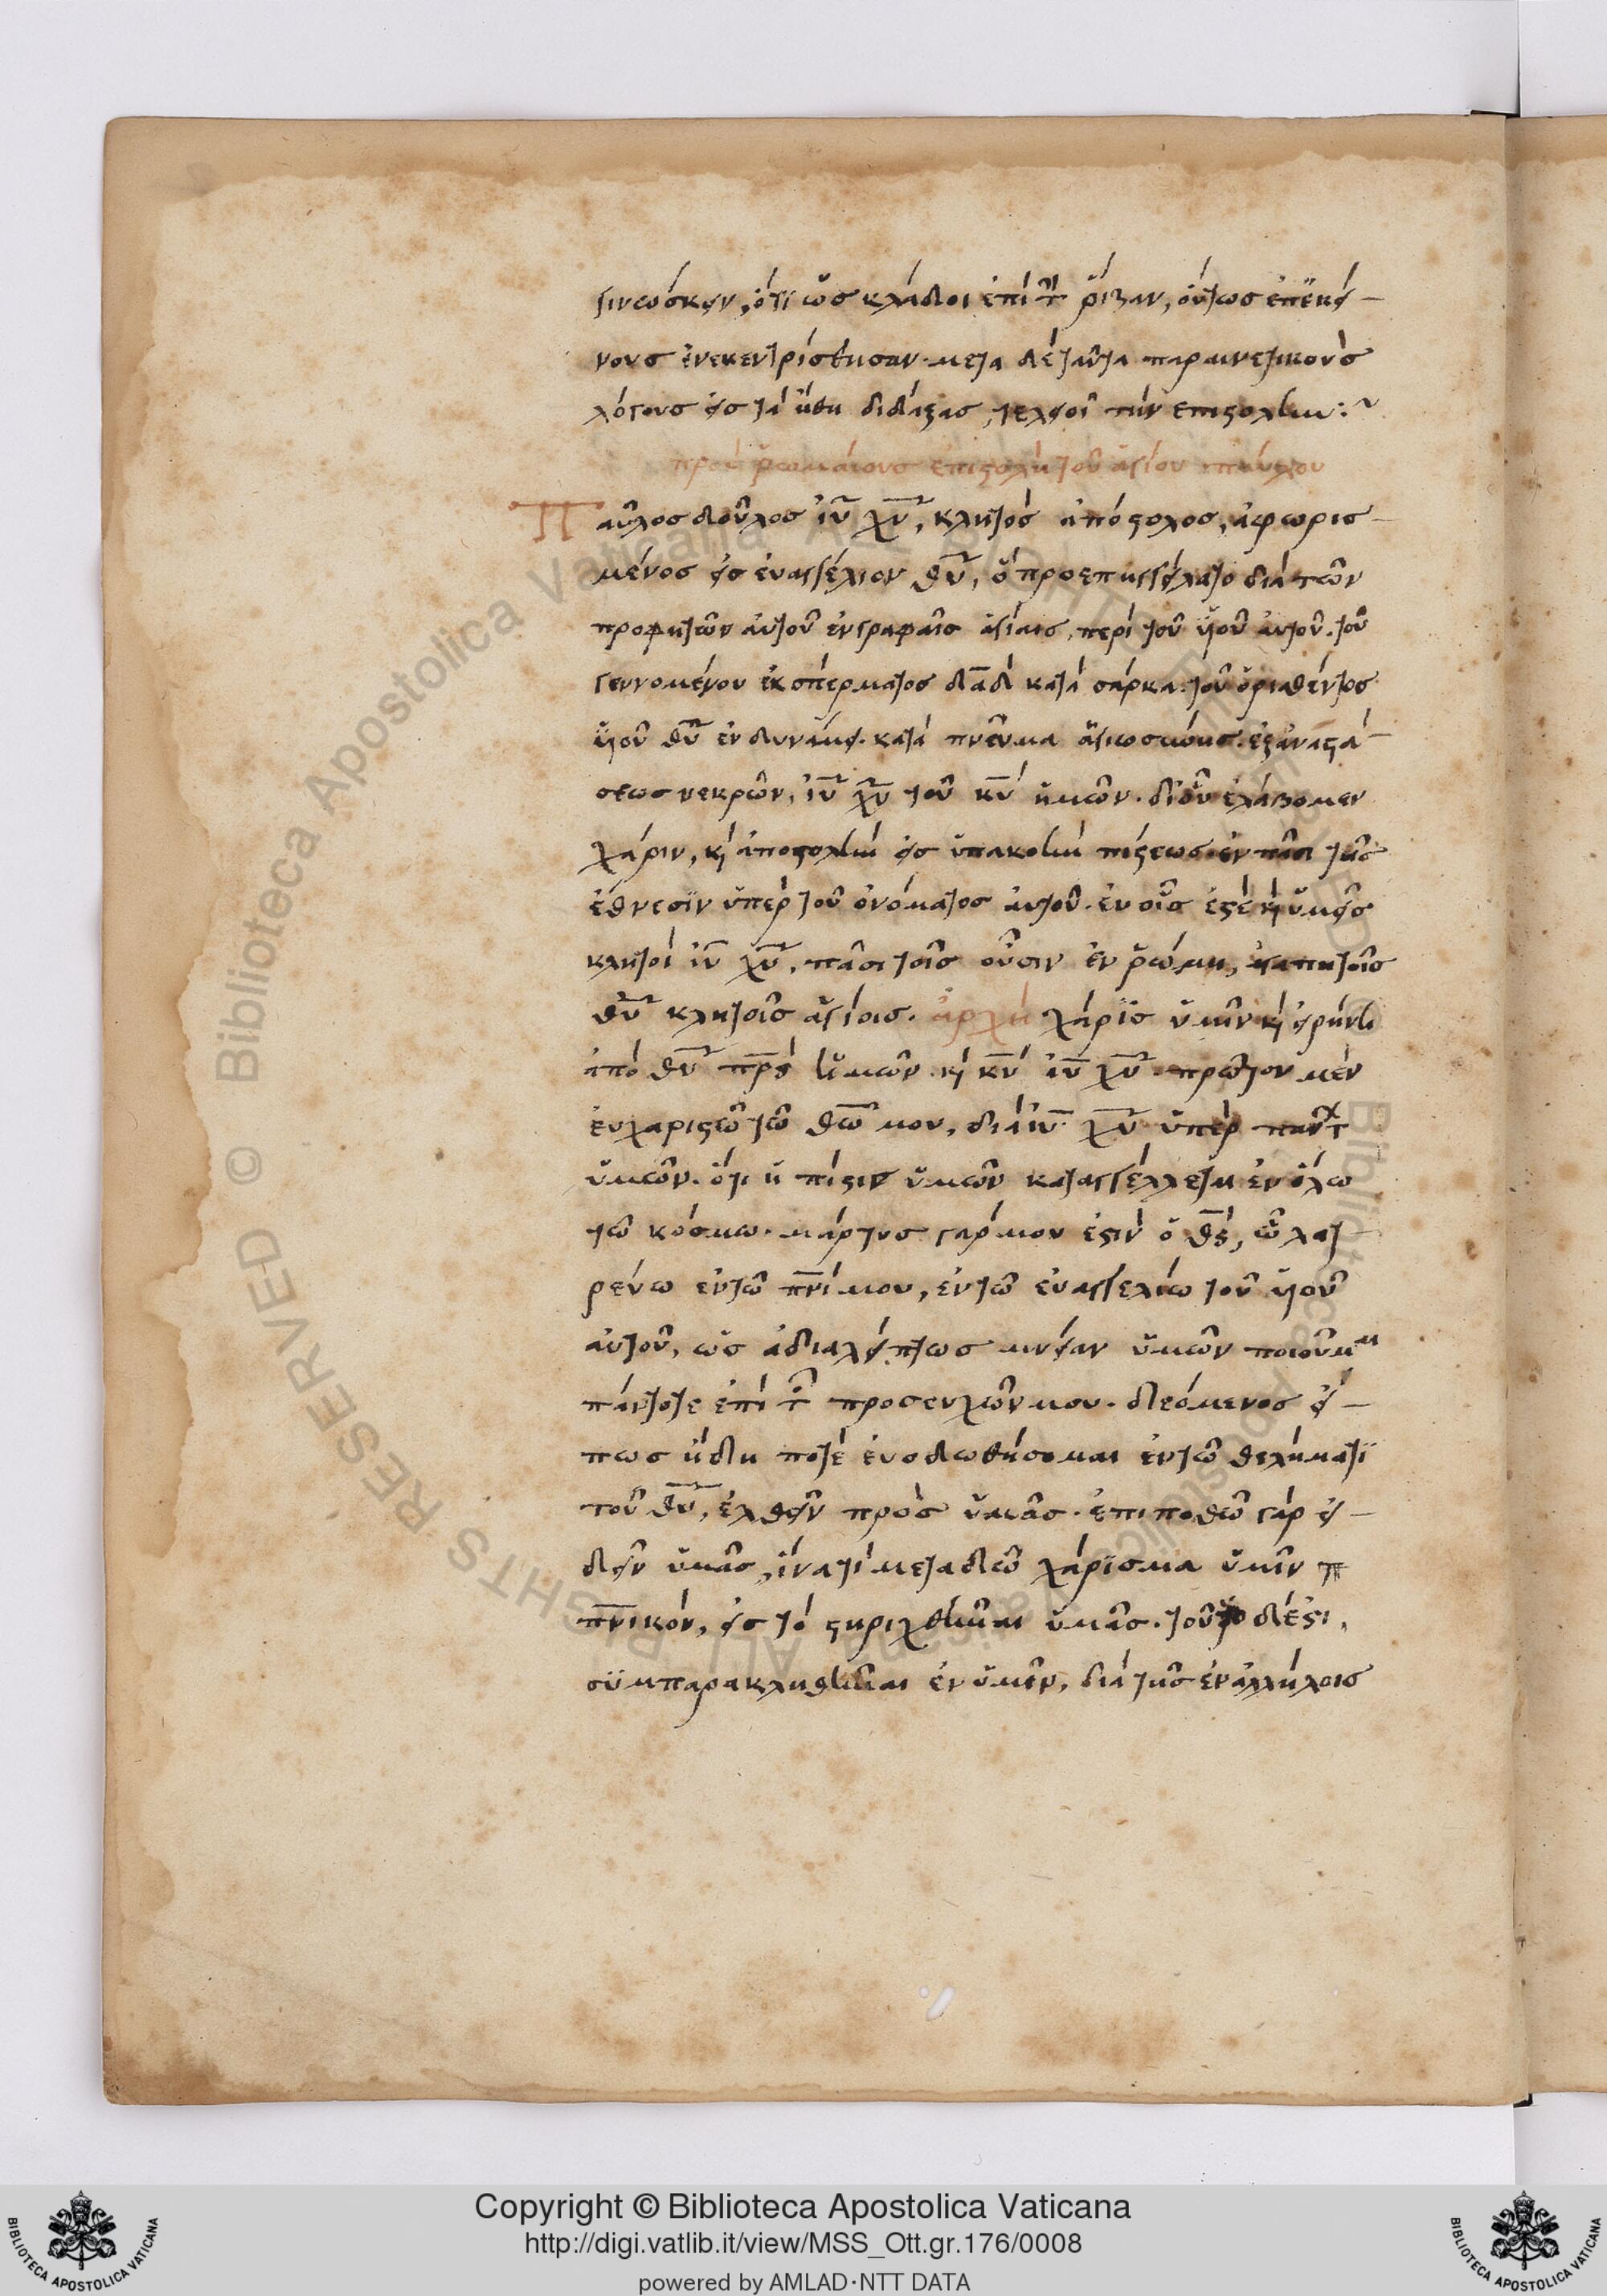 γινώσκειν, ὅτι ὡς κλάδοι ἐπὶ τὴν ῥίζαν, οὕτως ἐπ ἐκεί-
νους ἐνεκεντρίσθησαν. μετα δὲ ταῦτα παραινετικοὺς
λόγους εἰς τὰ ἤθη διδάξας, τελειοῖ τὴν επιστολήν:~
πρὸς ῥωμαίους ἐπιστολὴ τοῦ ἁγίου παύλου
Παῦλος δοῦλος ἰῦ χῦ, κλητὸς ἀπόστολος, ἀφωρισ-
μένος εἰς ἐυαγγέλιον θῦ, ὃ προεπηγγείλατο διὰ τῶν
προφητῶν ἀυτοῦ ἐν γραφαῖς ἁγίαις, περὶ τοῦ υἱοῦ ἀυτοῦ. τοῦ
γεννομένου ἐκ σπέρματος δαδ κατὰ σάρκα. τοῦ ὁρισθέντος
υἱοῦ θῦ ἐν δυνάμει. κατὰ πνεῦμα ἁγιωσύνης. ἐξ ἀναστά-
σεως νεκρῶν, ἰῦ χῦ τοῦ κῦ ἡμῶν. δι οὗ ἐλάβομεν
χάριν, κὶ ἀποστολὴν εἰς ὑπακοὴν πίστεως ἐν πᾶσι τοῖς
ἔθνεσιν ὑπὲρ τοῦ ὀνόματος ἀυτοῦ. ἐν οἷς ἐστὲ κὶ ὑμεῖς
κλητοὶ ἰῦ χῦ, πᾶσι τοῖς οὖσιν ἐν ῥώμη, ἀγαπητοῖς
θῦ κλητοῖς ἁγίοις. ἀρχὴ χάρις ὑμῖν κὶ εἰρήνη
ἀπὸ θῦ πρς ἡμῶν κὶ κῦ ἰῦ χῦ. πρῶτον μὲν
ἐυχαριστῶ τῶ θῶ μου, διὰ ἰῦ χῦ ὑπὲρ παντ
ὑμῶν. ὅτι ἡ πίστις ὑμῶν καταγγέλλεται ἐν ὅλω
τῶ κόσμω. μάρτυς γάρ μου ἐστὶν ὁ θς, ὧ λατ
ρεύω ἐν τῶ πνί μου, ἐν τῶ ἐυαγγελίω τοῦ υἱοῦ
ἀυτοῦ, ὡς ἀδιαλείπτως μνείαν ὑμῶν ποιοῦμαι
πάντοτε ἐπὶ τ προσευχῶν μου. δεόμενος εἴ-
πως ἤδη ποτὲ ἐυοδωθήσομαι ἐν τῶ θελήματι
τοῦ θῦ, ἐλθεῖν πρὸς ὑμᾶς. ἐπιποθῶ γὰρ ἰ-
δεῖν ὑμᾶς, ἵνα τί μεταδῶ χάρισμα ὑμῖν π
πνικόν, εἰς τὸ στηριχθῆναι ὑμᾶς. τοῦτο δέ ἐστι,
συμπαρακληθῆναι ἐν ὑμῖν, διὰ τῆς ἐν ἀλλήλοις
Copyright © Biblioteca Apostolica Vaticana
http://digi.vatlib.it/view/MSS_Ott.gr.176/0008
powered by AMLAD·NTT DATA